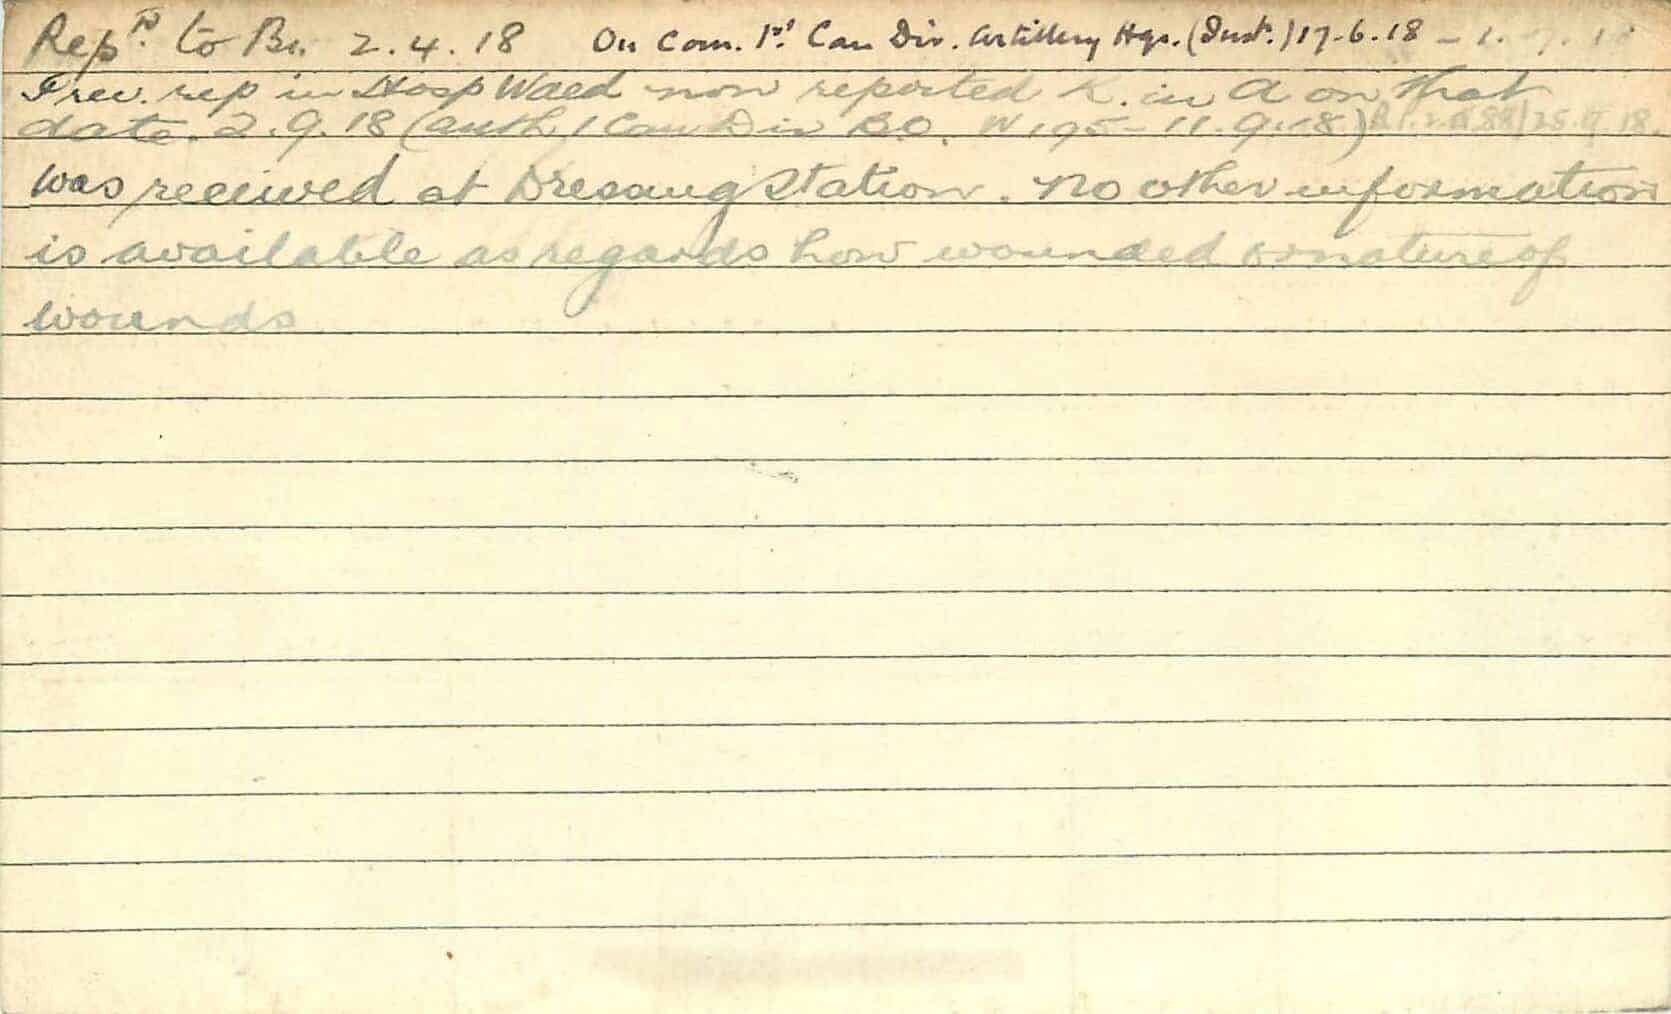 Repᵈ. to Bn. 2.4.18 On Com. 1st Can Div. Artillery Hqs. (Inst.) 17.6.18 -
Prev. rep in Hosp Wded now reported K. in A on that
date. 2.9.18 (auth 1 Can Div B.O. W 195 - 11.9.18)
was received at Dressing Station. No other information
is available as regards how wounded or nature of
wounds